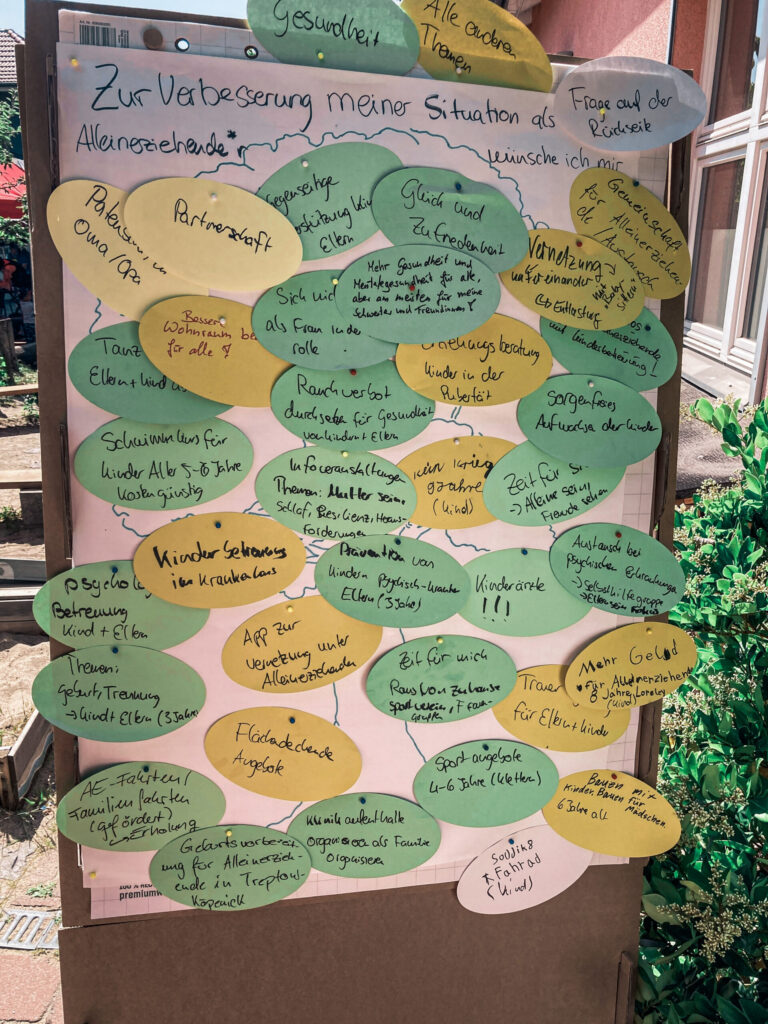 Gesundheit
Alle anderen
Themen
Zur Verbesserung meiner Situation als
Alleinerziehende*r
wünsche ich mir
Frage auf der
Rückseite
Oma/Opa
Partnerschaft
Gegenseitige
Eltern
Glück und
Zufriedenheit
Gemeinschaft
für Alleinerziehen-
de / Austausch
Vernetzung
untereinander
Entlastung
Mehr Gesundheit und
Mentalegesundheit für alle,
aber am meisten für meine
Schwester und Freundinnen!
Sich
als Frau in der
rolle
Besserer
Wohnraum be
für alle !
Tanz
Eltern + Kind
Erziehungsberatung
Kinder in der
Pubertät
und Kinderbetreuung!
Rauchverbot
durchsetzen für Gesundheit
von Kindern + Eltern
Sorgenfreies
Aufwachsen der Kinder
Schwimmkurs für
Kinder Alter 5-8 Jahre
Kostengünstig
Infoveranstaltungen
Themen: Mutter sein,
Schlaf, Resilienz, Heraus-
forderungen
kein Krieg
9 Jahre
(Kind)
Zeit für
→ Alleine sein/
Freunde sehen
Kinderbetreuung
im Krankenhaus
Prävention von
Kindern Psychisch-kranker
Eltern (3 Jahre)
Kinderärzte
!!!
Austausch bei
psychischen Erkrankungen
→ Selbsthilfegruppe
Betreuung
Kind + Eltern
App zur
Vernetzung unter
Alleinerziehenden
Themen:
Geburt, Trennung
→ Kind + Eltern (3 Jahre)
Zeit für mich
Raus von Zuhause
Sportverein,
Gruppen
Mehr Geld
für Alleinerziehende
8 Jahre,
(Kind)
Trauer
für Eltern + Kinder
Flächendeckende
Angebote
Sportangebote
4-6 Jahre (Klettern)
AE-Fahrten/
Familienfahrten
(gefördert)
Erholung
Bauen mit
Kinder. Bauen für
Mädchen.
6 Jahre alt
Klinikaufenthalte
Organisieren als Familie
Organisieren
Geburtsvorbereit-
ung für Alleinerzieh-
ende in Treptow-
Köpenick
Fahrad
(Kind)
premium